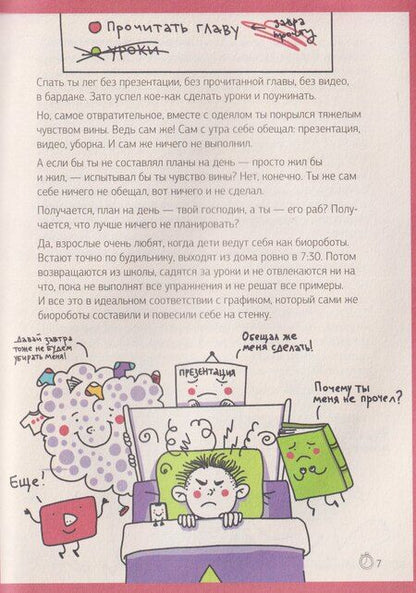 Прочитать главу
завтра
прочту
уроки
Спать ты лег без презентации, без прочитанной главы, без видео,
в бардаке. Зато успел кое-как сделать уроки и поужинать.
Но, самое отвратительное, вместе с одеялом ты покрылся тяжелым
чувством вины. Ведь сам же! Сам с утра себе обещал: презентация,
видео, уборка. И сам же ничего не выполнил.
А если бы ты не составлял планы на день — просто жил бы
и жил, — испытывал бы ты чувство вины? Нет, конечно. Ты же сам
себе ничего не обещал, вот ничего и не сделал.
Получается, план на день — твой господин, а ты — его раб? Полу-
чается, что лучше ничего не планировать?
Да, взрослые очень любят, когда дети ведут себя как биороботы.
Встают точно по будильнику, выходят из дома ровно в 7:30. Потом
возвращаются из школы, садятся за уроки и не отвлекаются ни на
что, пока не выполнят все упражнения и не решат все примеры.
И все это в идеальном соответствии с графиком, который сами же
биороботы составили и повесили себе на стенку.
Давай завтра
тоже не будем
убирать меня!
Обещал же
меня сделать!
ПРЕЗЕНТАЦИЯ
Почему ты
меня не прочел?
Еще!
7